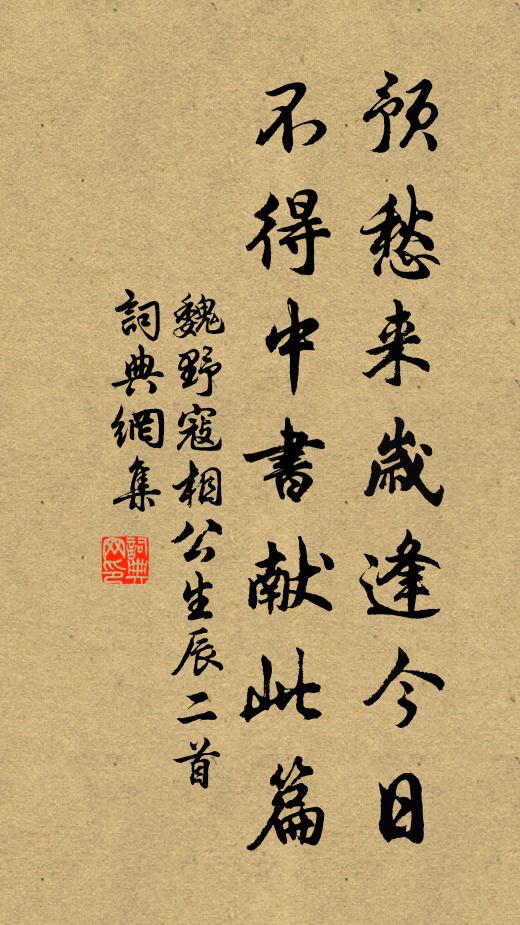 预愁来岁逢今日
不得中書献此篇
魏野寇相公生辰二首
詞典網集
詞典网印